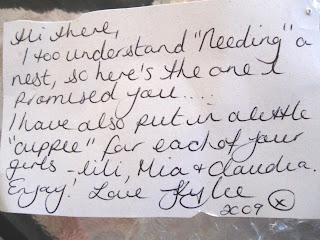 Hi there,
I too understand "Needing" a
nest, so here's the one I
promised you....
I have also put in a little
"cuppee" for each of your
girls - lili, Mia & Claudia.
Enjoy! Love Kylie
2009 x